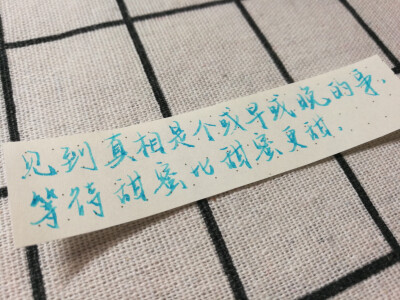 见到真相是个或早或晚的事.
等待甜蜜比甜蜜更甜.